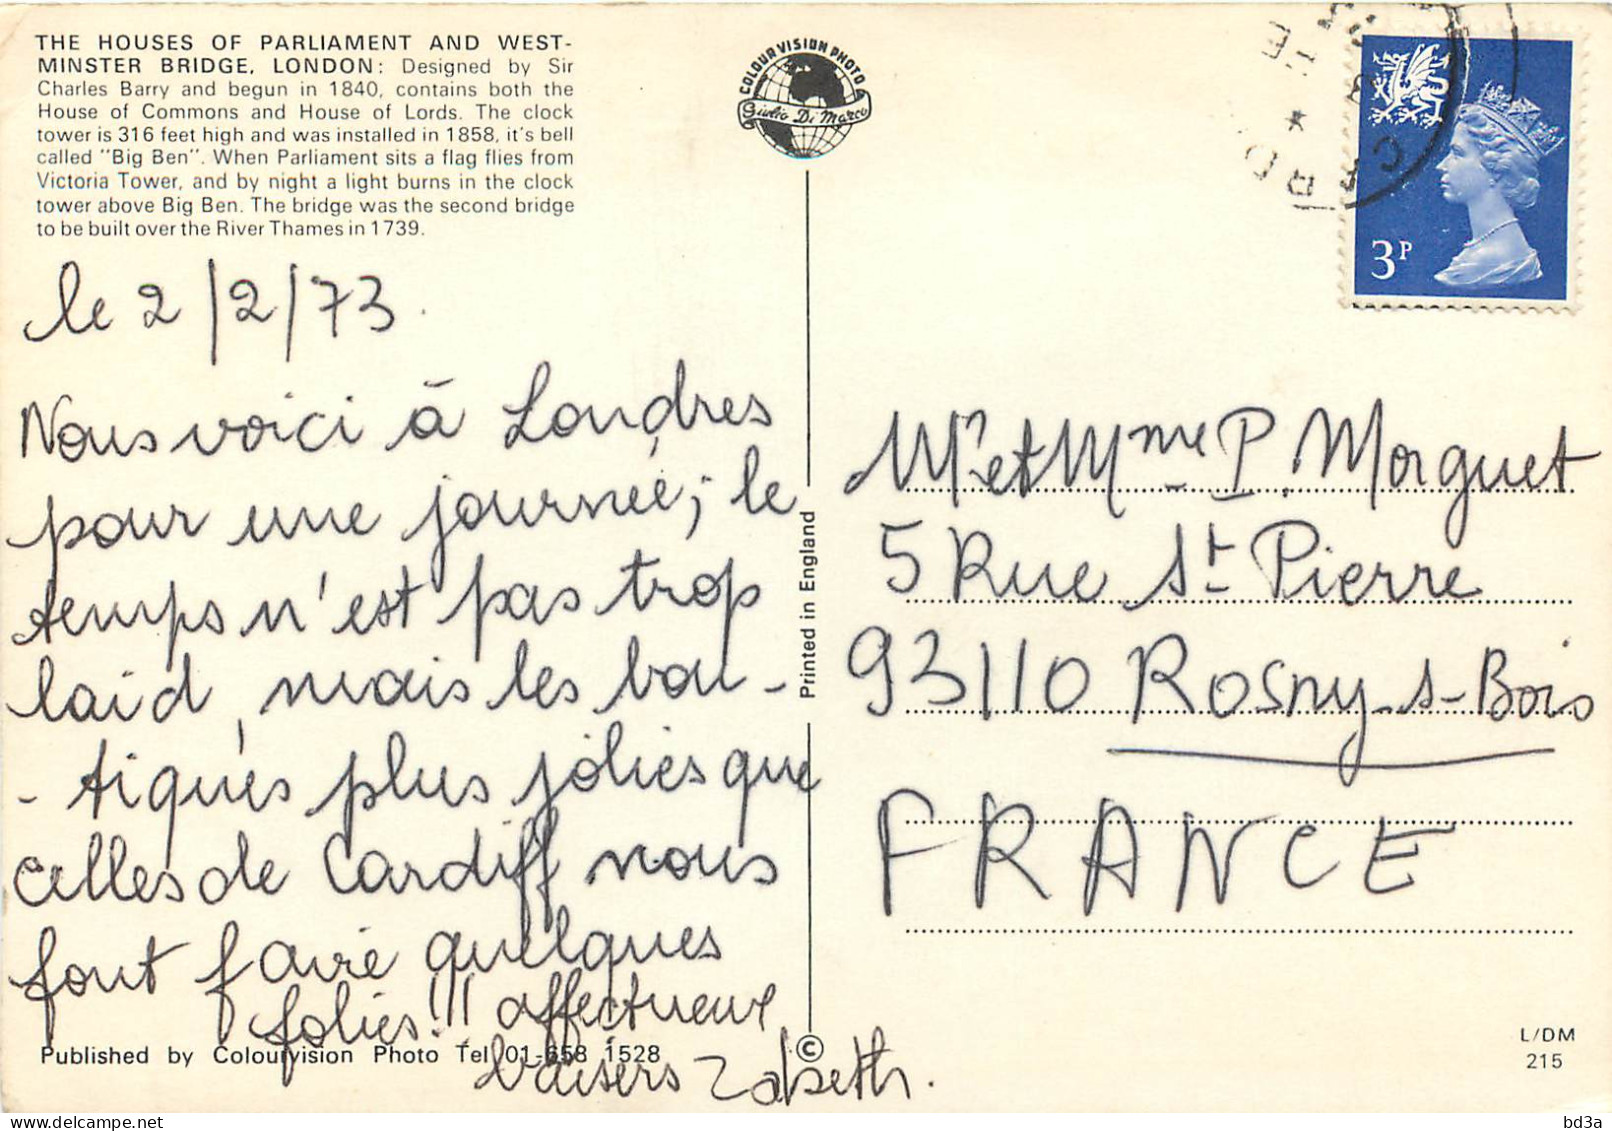 THE HOUSES OF PARLIAMENT AND WEST-
MINSTER BRIDGE, LONDON: Designed by Sir
Charles Barry and begun in 1840, contains both the
House of Commons and House of Lords. The clock
tower is 316 feet high and was installed in 1858, it's bell
called "Big Ben". When Parliament sits a flag flies from
Victoria Tower, and by night a light burns in the clock
tower above Big Ben. The bridge was the second bridge
to be built over the River Thames in 1739.
le 2/2/73.
Nous voici à Londres
pour une journée; le
temps n'est pas trop
laid, mais les bou-
-tiques plus jolies que
celles de Cardiff nous
font faire quelques
folies!!! affectueux
baisers Zabeth.
Published by Colourvision Photo Tel 01-658 1528
COLOURVISION PHOTO
Giulio Di Marco
Printed in England
©
3P
CARD
Mr et Mme P. Morguet
5 Rue St Pierre
93110 Rosny-s-Bois
FRANCE
L/DM
215
Delcampe.net
bd3a